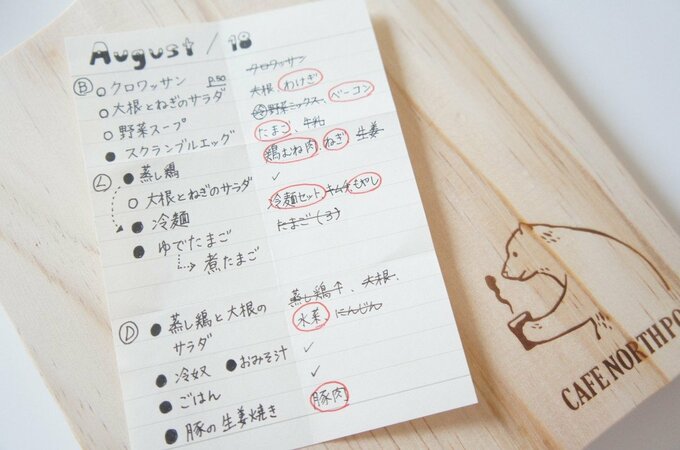 August / 18
B クロワッサン P.50 クロワッサン
大根とねぎのサラダ 大根 わけぎ
野菜スープ 冷野菜ミックス、ベーコン
スクランブルエッグ たまご、牛乳
L 蒸し鶏 鶏むね肉、ねぎ 生姜
大根とねぎのサラダ ✓
冷麺 冷麺セット キムチ、もやし
ゆでたまご たまご(3)
煮たまご
D 蒸し鶏と大根の 蒸し鶏 、大根、
サラダ 水菜、にんじん
冷奴 おみそ汁 ✓
ごはん ✓
豚の生姜焼き 豚肉
CAFE NORTHPO